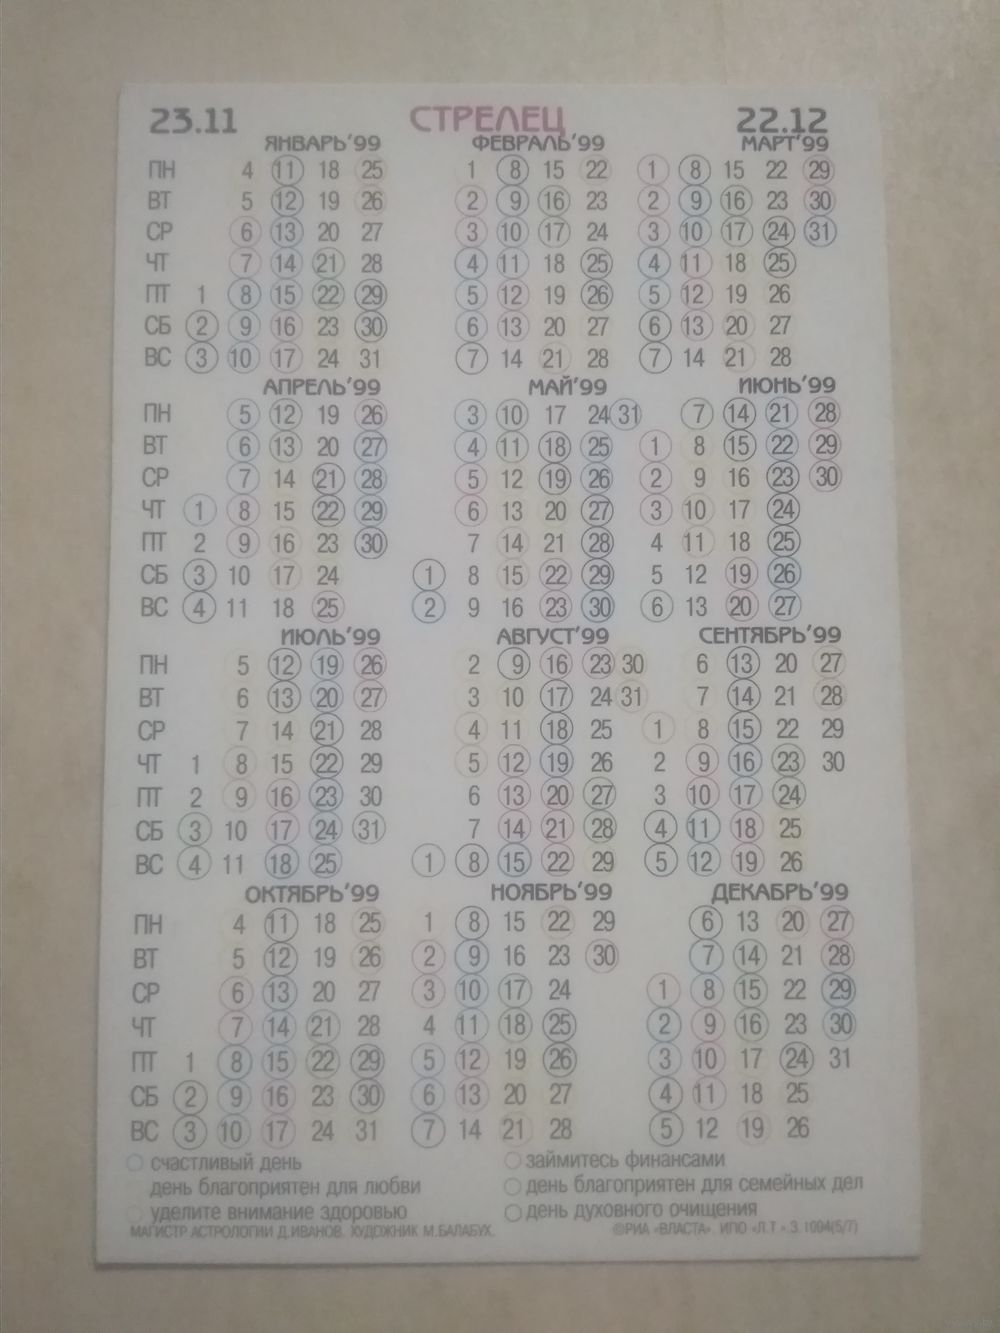 23.11 СТРЕЛЕЦ 22.12
ЯНВАРЬ'99 ФЕВРАЛЬ'99 МАРТ'99
ПН 4 11 18 25 1 8 15 22 1 8 15 22 29
ВТ 5 12 19 26 2 9 16 23 2 9 16 23 30
СР 6 13 20 27 3 10 17 24 3 10 17 24 31
ЧТ 7 14 21 28 4 11 18 25 4 11 18 25
ПТ 1 8 15 22 29 5 12 19 26 5 12 19 26
СБ 2 9 16 23 30 6 13 20 27 6 13 20 27
ВС 3 10 17 24 31 7 14 21 28 7 14 21 28
АПРЕЛЬ'99 МАЙ'99 ИЮНЬ'99
ПН 5 12 19 26 3 10 17 24 31 7 14 21 28
ВТ 6 13 20 27 4 11 18 25 1 8 15 22 29
СР 7 14 21 28 5 12 19 26 2 9 16 23 30
ЧТ 1 8 15 22 29 6 13 20 27 3 10 17 24
ПТ 2 9 16 23 30 7 14 21 28 4 11 18 25
СБ 3 10 17 24 1 8 15 22 29 5 12 19 26
ВС 4 11 18 25 2 9 16 23 30 6 13 20 27
ИЮЛЬ'99 АВГУСТ'99 СЕНТЯБРЬ'99
ПН 5 12 19 26 2 9 16 23 30 6 13 20 27
ВТ 6 13 20 27 3 10 17 24 31 7 14 21 28
СР 7 14 21 28 4 11 18 25 1 8 15 22 29
ЧТ 1 8 15 22 29 5 12 19 26 2 9 16 23 30
ПТ 2 9 16 23 30 6 13 20 27 3 10 17 24
СБ 3 10 17 24 31 7 14 21 28 4 11 18 25
ВС 4 11 18 25 1 8 15 22 29 5 12 19 26
ОКТЯБРЬ'99 НОЯБРЬ'99 ДЕКАБРЬ'99
ПН 4 11 18 25 1 8 15 22 29 6 13 20 27
ВТ 5 12 19 26 2 9 16 23 30 7 14 21 28
СР 6 13 20 27 3 10 17 24 1 8 15 22 29
ЧТ 7 14 21 28 4 11 18 25 2 9 16 23 30
ПТ 1 8 15 22 29 5 12 19 26 3 10 17 24 31
СБ 2 9 16 23 30 6 13 20 27 4 11 18 25
ВС 3 10 17 24 31 7 14 21 28 5 12 19 26
счастливый день займитесь финансами
день благоприятен для любви день благоприятен для семейных дел
уделите внимание здоровью день духовного очищения
МАГИСТР АСТРОЛОГИИ Д.ИВАНОВ. ХУДОЖНИК М.БАЛАБУХ. ©РИА «ВЛАСТА». ИПО «Л.Т.».З.1094(5/7)